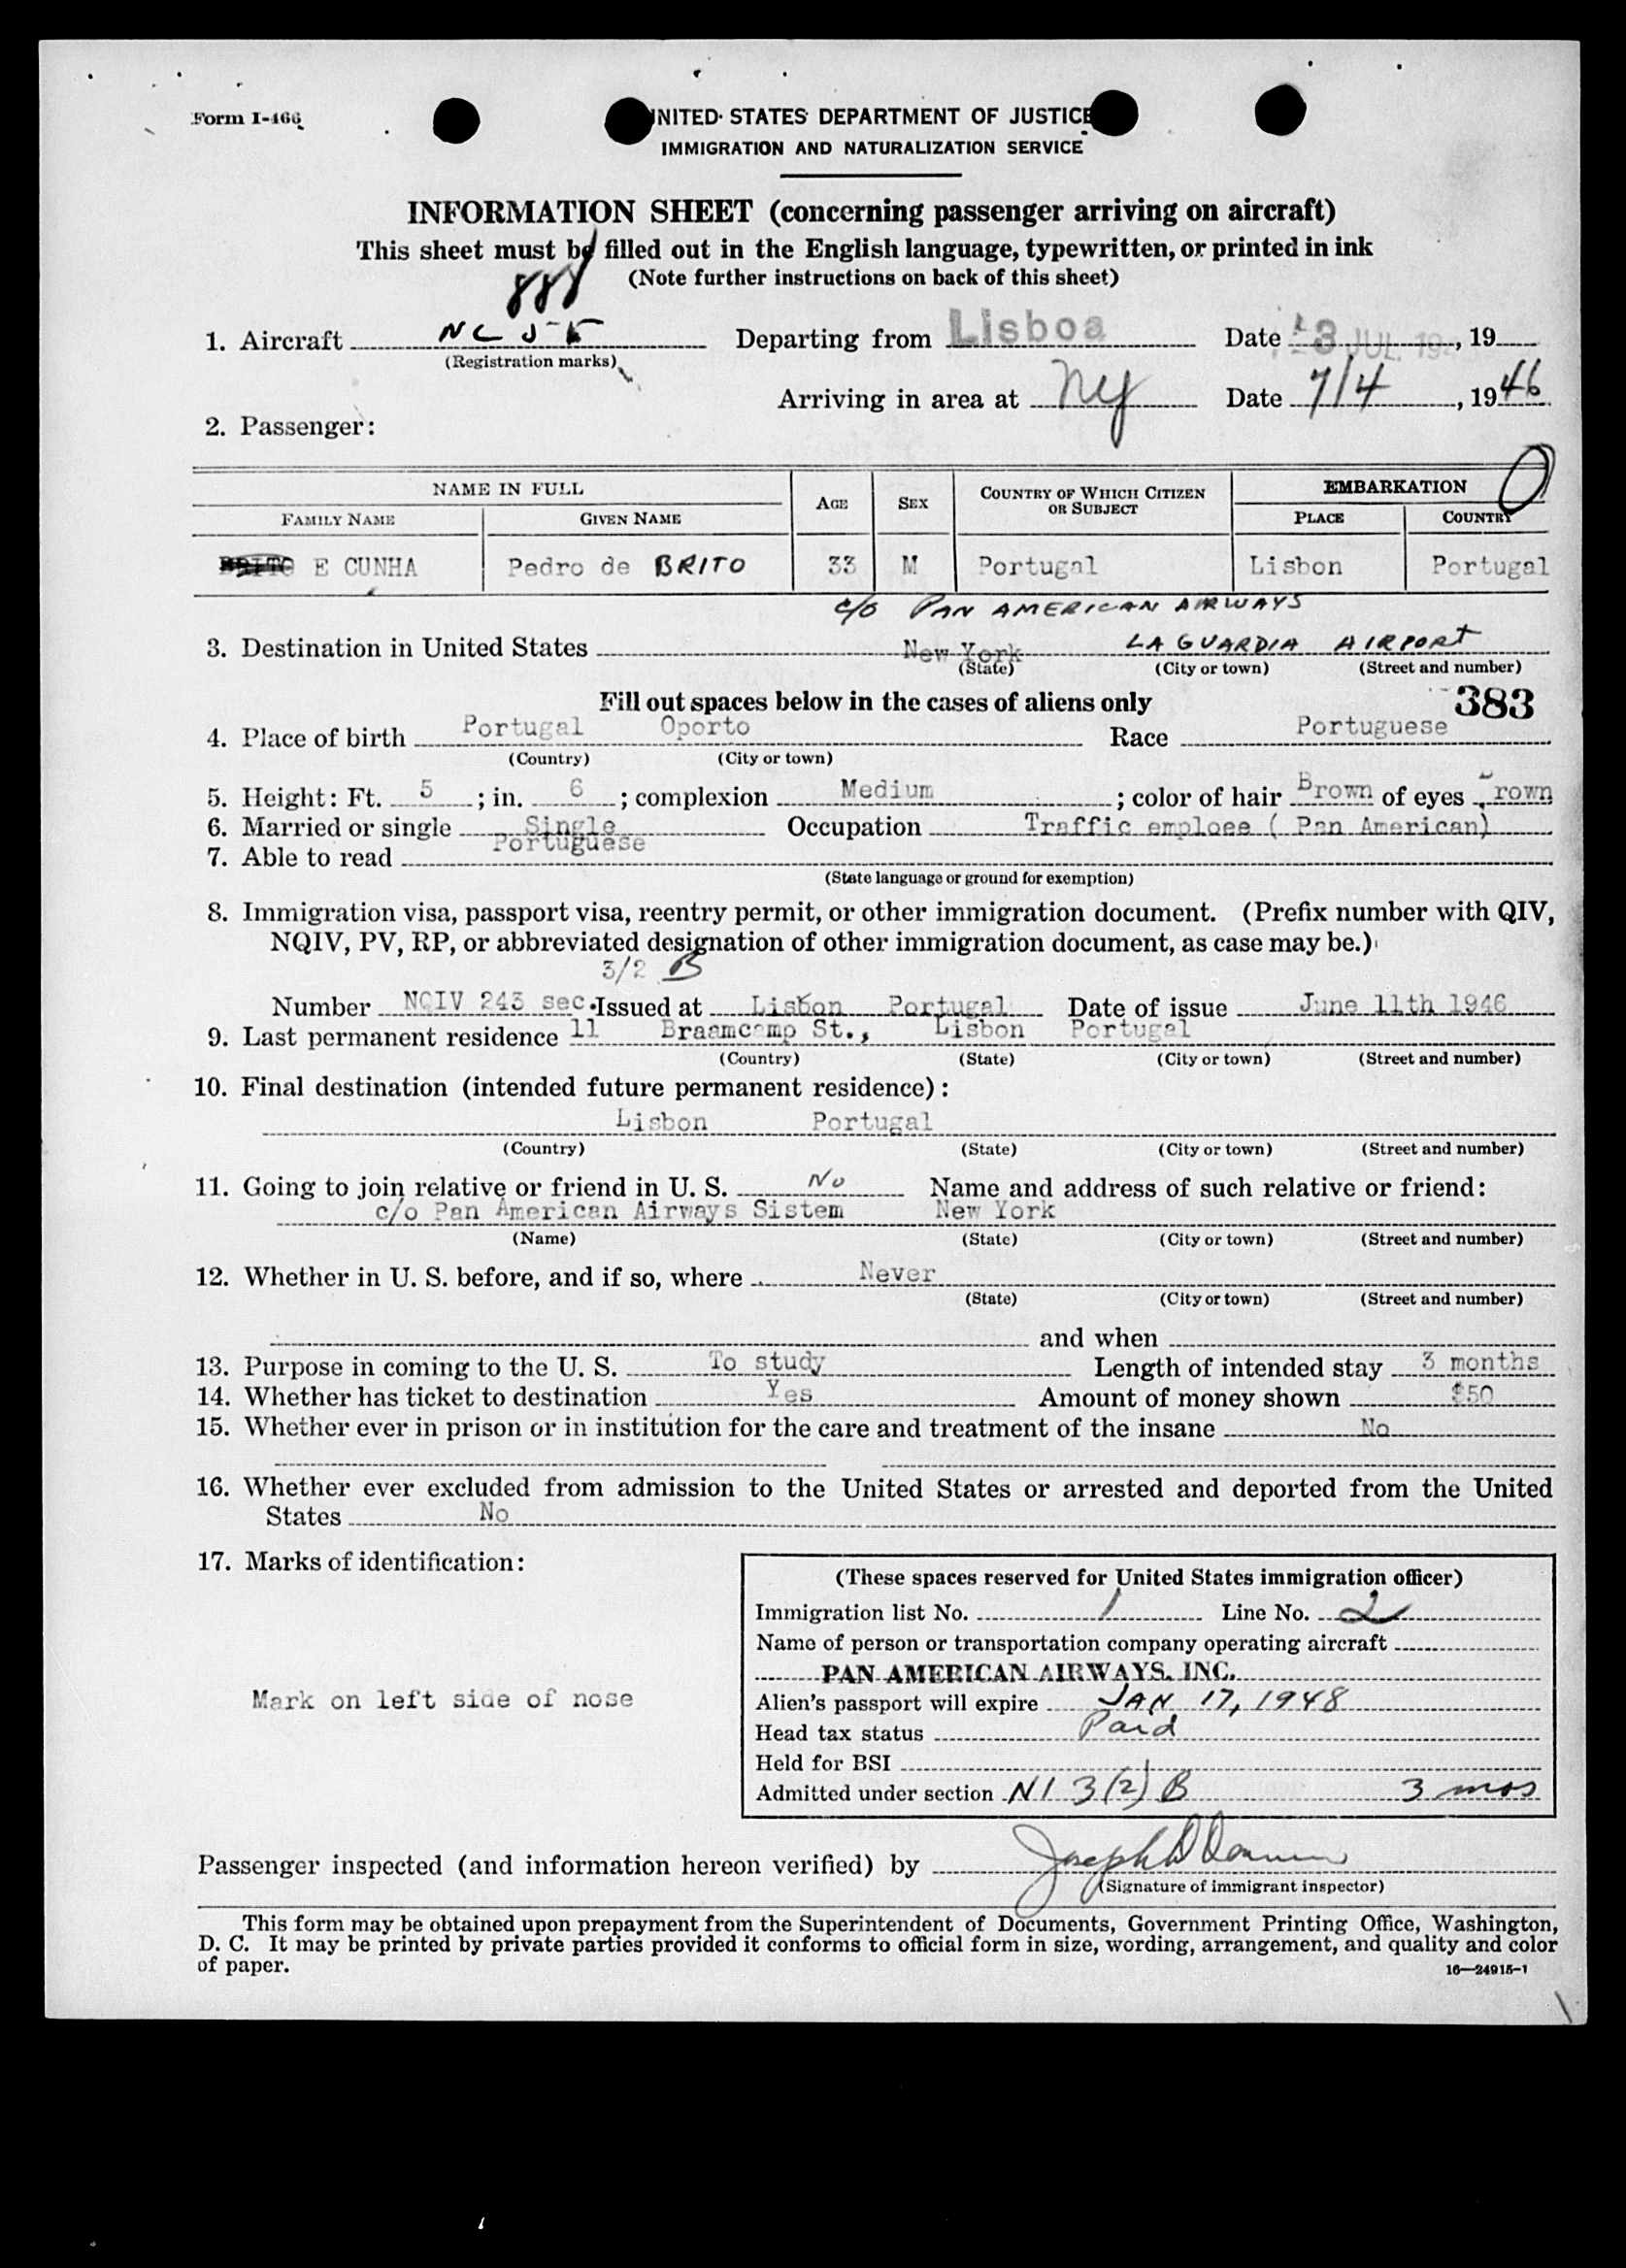 Form I-466
UNITED STATES DEPARTMENT OF JUSTICE
IMMIGRATION AND NATURALIZATION SERVICE
INFORMATION SHEET (concerning passenger arriving on aircraft)
This sheet must be filled out in the English language, typewritten, or printed in ink
(Note further instructions on back of this sheet)
888
1. Aircraft NC Departing from Lisboa Date 3 JUL. 19, 19
(Registration marks)
Arriving in area at NY Date 7/4, 1946
2. Passenger:
NAME IN FULL AGE SEX COUNTRY OF WHICH CITIZEN OR SUBJECT EMBARKATION
FAMILY NAME GIVEN NAME PLACE COUNTRY
BRITO E CUNHA Pedro de BRITO 33 M Portugal Lisbon Portugal
c/o PAN AMERICAN AIRWAYS
3. Destination in United States New York LA GUARDIA AIRPORT
(State) (City or town) (Street and number)
Fill out spaces below in the cases of aliens only 383
4. Place of birth Portugal Oporto Race Portuguese
(Country) (City or town)
5. Height: Ft. 5; in. 6; complexion Medium; color of hair Brown of eyes Brown
6. Married or single Single Occupation Traffic emploee ( Pan American)
7. Able to read Portuguese
(State language or ground for exemption)
8. Immigration visa, passport visa, reentry permit, or other immigration document. (Prefix number with QIV,
NQIV, PV, RP, or abbreviated designation of other immigration document, as case may be.)
3/2 B
Number NQIV 243 sec. Issued at Lisbon Portugal Date of issue June 11th 1946
9. Last permanent residence 11 Braamcamp St., Lisbon Portugal
(Country) (State) (City or town) (Street and number)
10. Final destination (intended future permanent residence):
Lisbon Portugal
(Country) (State) (City or town) (Street and number)
11. Going to join relative or friend in U. S. No Name and address of such relative or friend:
c/o Pan American Airways Sistem New York
(Name) (State) (City or town) (Street and number)
12. Whether in U. S. before, and if so, where Never
(State) (City or town) (Street and number)
and when
13. Purpose in coming to the U. S. To study Length of intended stay 3 months
14. Whether has ticket to destination Yes Amount of money shown $50
15. Whether ever in prison or in institution for the care and treatment of the insane No
16. Whether ever excluded from admission to the United States or arrested and deported from the United
States No
17. Marks of identification:
Mark on left side of nose
(These spaces reserved for United States immigration officer)
Immigration list No. 1 Line No. 2
Name of person or transportation company operating aircraft
PAN AMERICAN AIRWAYS, INC.
Alien's passport will expire JAN 17, 1948
Head tax status Paid
Held for BSI
Admitted under section NI 3(2) B 3 mos
Passenger inspected (and information hereon verified) by Joseph
(Signature of immigrant inspector)
This form may be obtained upon prepayment from the Superintendent of Documents, Government Printing Office, Washington,
D. C. It may be printed by private parties provided it conforms to official form in size, wording, arrangement, and quality and color
of paper.
16—24915-1